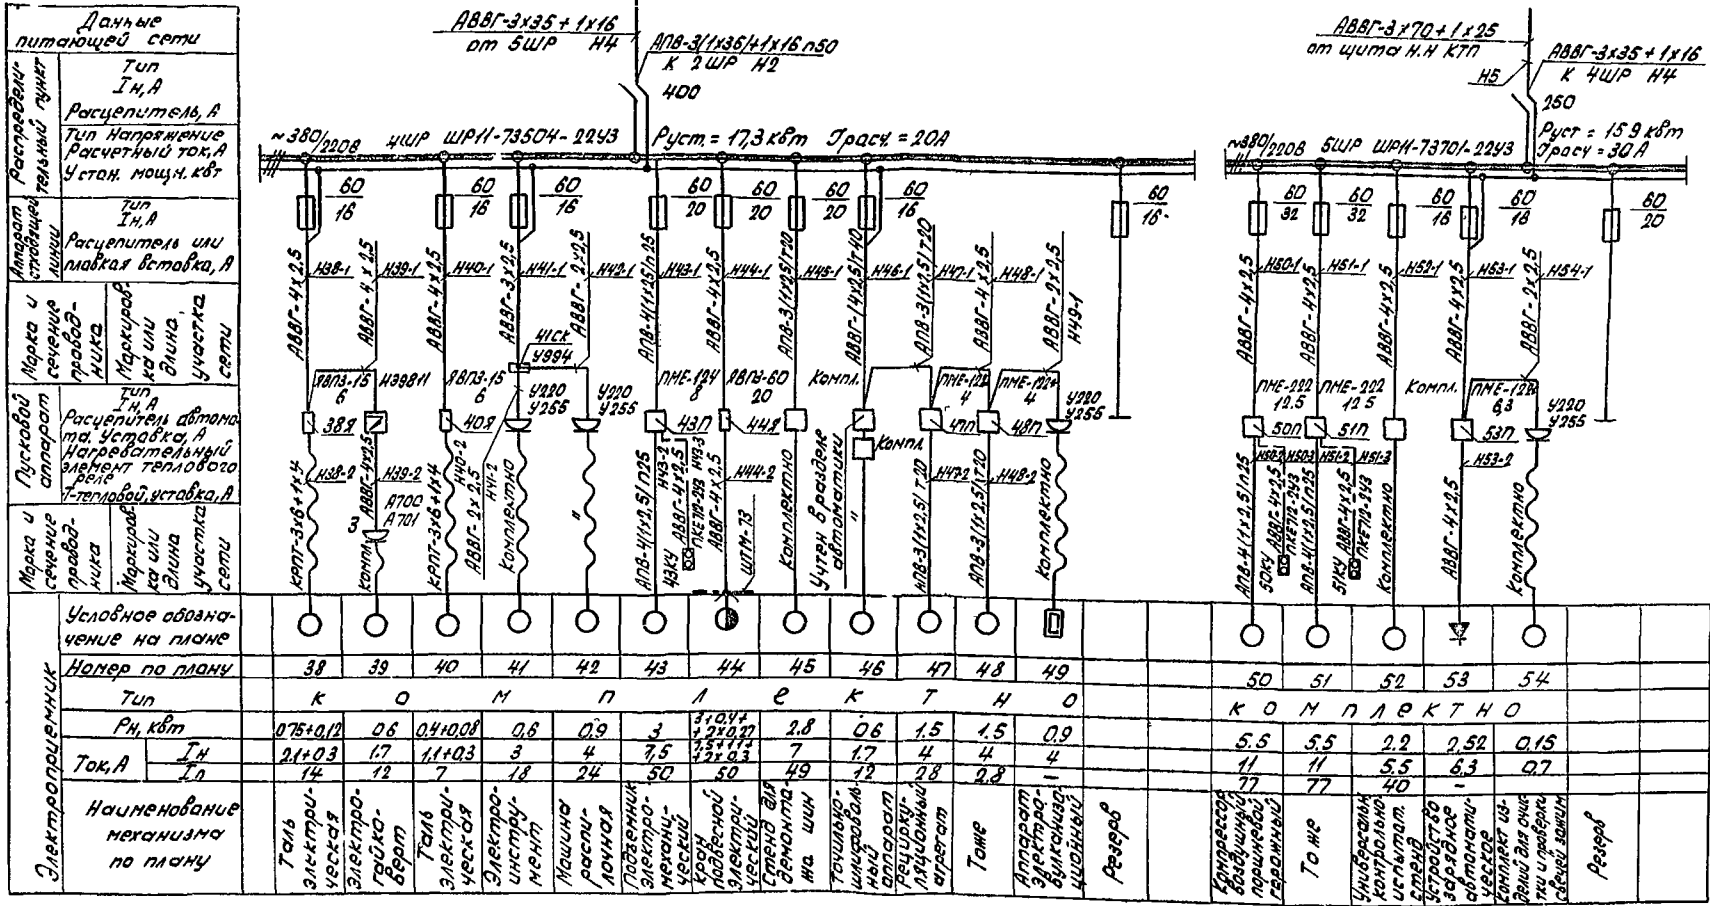 Данные
питающей сети
Распредели-
тельный пункт
Тип
Iн, А
Расцепитель, А
Тип Напряжение
Расчетный ток, А
Устан. мощн. кВт
Аппарат
отходящей
линии
Тип
Iн, А
Расцепитель или
плавкая вставка, А
Марка и
сечение
провод-
ника
Маркиров-
ка или
длина,
участка
сети
Пусковой
аппарат
Тип
Iн, А
Расцепитель автома-
та. Уставка, А
Нагревательный
элемент теплового
реле
Т-тепловой, уставка, А
Марка и
сечение
провод-
ника
Маркиров-
ка или
длина
участка
сети
АВВГ-3х35+1х16
от 5ШР Н4
АПВ-3(1х35)+1х16 п50
К 2ШР Н2
400
~380/220В 4ШР ШР11-73504-22У3 Руст.=17,3 кВт Iрасч.=20А
60/16 60/16 60/16 60/20 60/20 60/20 60/16 60/16
АВВГ-4х2,5 Н38-1
АВВГ-4х2,5 Н39-1
АВВГ-4х2,5 Н40-1
АВВГ-3х2,5 Н41-1
АВВГ-2х2,5 Н42-1
АПВ-4(1х2,5)п25 Н43-1
АВВГ-4х2,5 Н44-1
АПВ-3(1х2,5)т20 Н45-1
АВВГ-(4х2,5)т40 Н46-1
АПВ-3(1х2,5)т20 Н47-1
АВВГ-4х2,5 Н48-1
АВВГ-2х2,5 Н49-1
41СК
У994
ЯВПЗ-15
6
38Я
ЯВПЗ-15
6
40Я
У220
У255
У220
У255
ПМЕ-124
8
43П
ЯВПЗ-60
20
44Я
Компл.
Компл.
ПМЕ-122
4
47П
ПМЕ-122
4
48П
У220
У255
Н38-2
КРПТ-3х6+1х4
Н39-2
АВВГ-4х2,5
А700
А701
З
Компл.
КРПТ-3х6+1х4
Н40-2
АВВГ-2х2,5
Н41-2
Комплектно
"
АПВ-4(1х2,5)п25
Н43-2
43КУ
АВВГ-4х2,5
ПКЕ712-2У3
Н43-3
АВВГ-4х2,5
Н44-2
ШТМ-73
Комплектно
Учтен в разделе
автоматики
"
АПВ-3(1х2,5)т20
Н47-2
АПВ-3(1х2,5)т20
Н48-2
Комплектно
АВВГ-3х70+1х25
от щита Н.Н КТП
Н5
АВВГ-3х35+1х16
К 4ШР Н4
250
~380/220В 5ШР ШР11-73701-22У3
Руст=15,9 кВт
Iрасч=30А
60/32 60/32 60/16 60/16 60/20
АВВГ-4х2,5 Н50-1
АВВГ-4х2,5 Н51-1
АВВГ-4х2,5 Н52-1
АВВГ-4х2,5 Н53-1
АВВГ-2х2,5 Н54-1
ПМЕ-222
12.5
50П
ПМЕ-222
12.5
51П
Компл.
ПМЕ-122
6,3
53П
У220
У255
Н50-2 Н50-3 Н51-2 Н51-3
Н53-2
АПВ-4(1х2,5)п25
50КУ АВВГ-4х2,5
ПКЕ712-2У3
АПВ-4(1х2,5)п25
51КУ АВВГ-4х2,5
ПКЕ712-2У3
Комплектно
АВВГ-4х2,5
Комплектно
Электроприемник
Условное обозна-
чение на плане
Номер по плану 38 39 40 41 42 43 44 45 46 47 48 49 50 51 52 53 54
Тип К О М П Л е К Т Н О К О М П Л е К Т Н О
Рн, кВт 0,75+0,12 0,6 0,4+0,08 0,6 0,9 3 3+0,4+ +2х0,27 2.8 0,6 1.5 1.5 0.9 5.5 5.5 2.2 2,52 0,15
Ток, А
Iн 2.1+0.3 1.7 1,1+0,3 3 4 7,5 7,5+1,1+ +2х0,3 7 1.7 4 4 4 11 11 5.5 6.3 0,7
Iп 14 12 7 18 24 50 50 49 12 28 28 – 77 77 40 –
Наименование
механизма
по плану
Таль
электри-
ческая
Электро-
гайко-
верт
Таль
электри-
ческая
Электро-
инстру-
мент
Машина
распи-
ловочная
Подъемник
электро-
механи-
ческий
Кран
подвесной
электри-
ческий
Стенд для
демонта-
жа шин
Точильно-
шлифоваль-
ный
аппарат
Рецирку-
ляционный
агрегат
То же
Аппарат
электро-
вулканиза-
ционный
Резерв
Компрессор
воздушный
поршневой
гаражный
То же
Универсальн.
контрольно-
испытат.
стенд
Устройство
зарядное
автомати-
ческое
Комплект из-
делий для очис-
тки и проверки
свечей зажиг.
Резерв